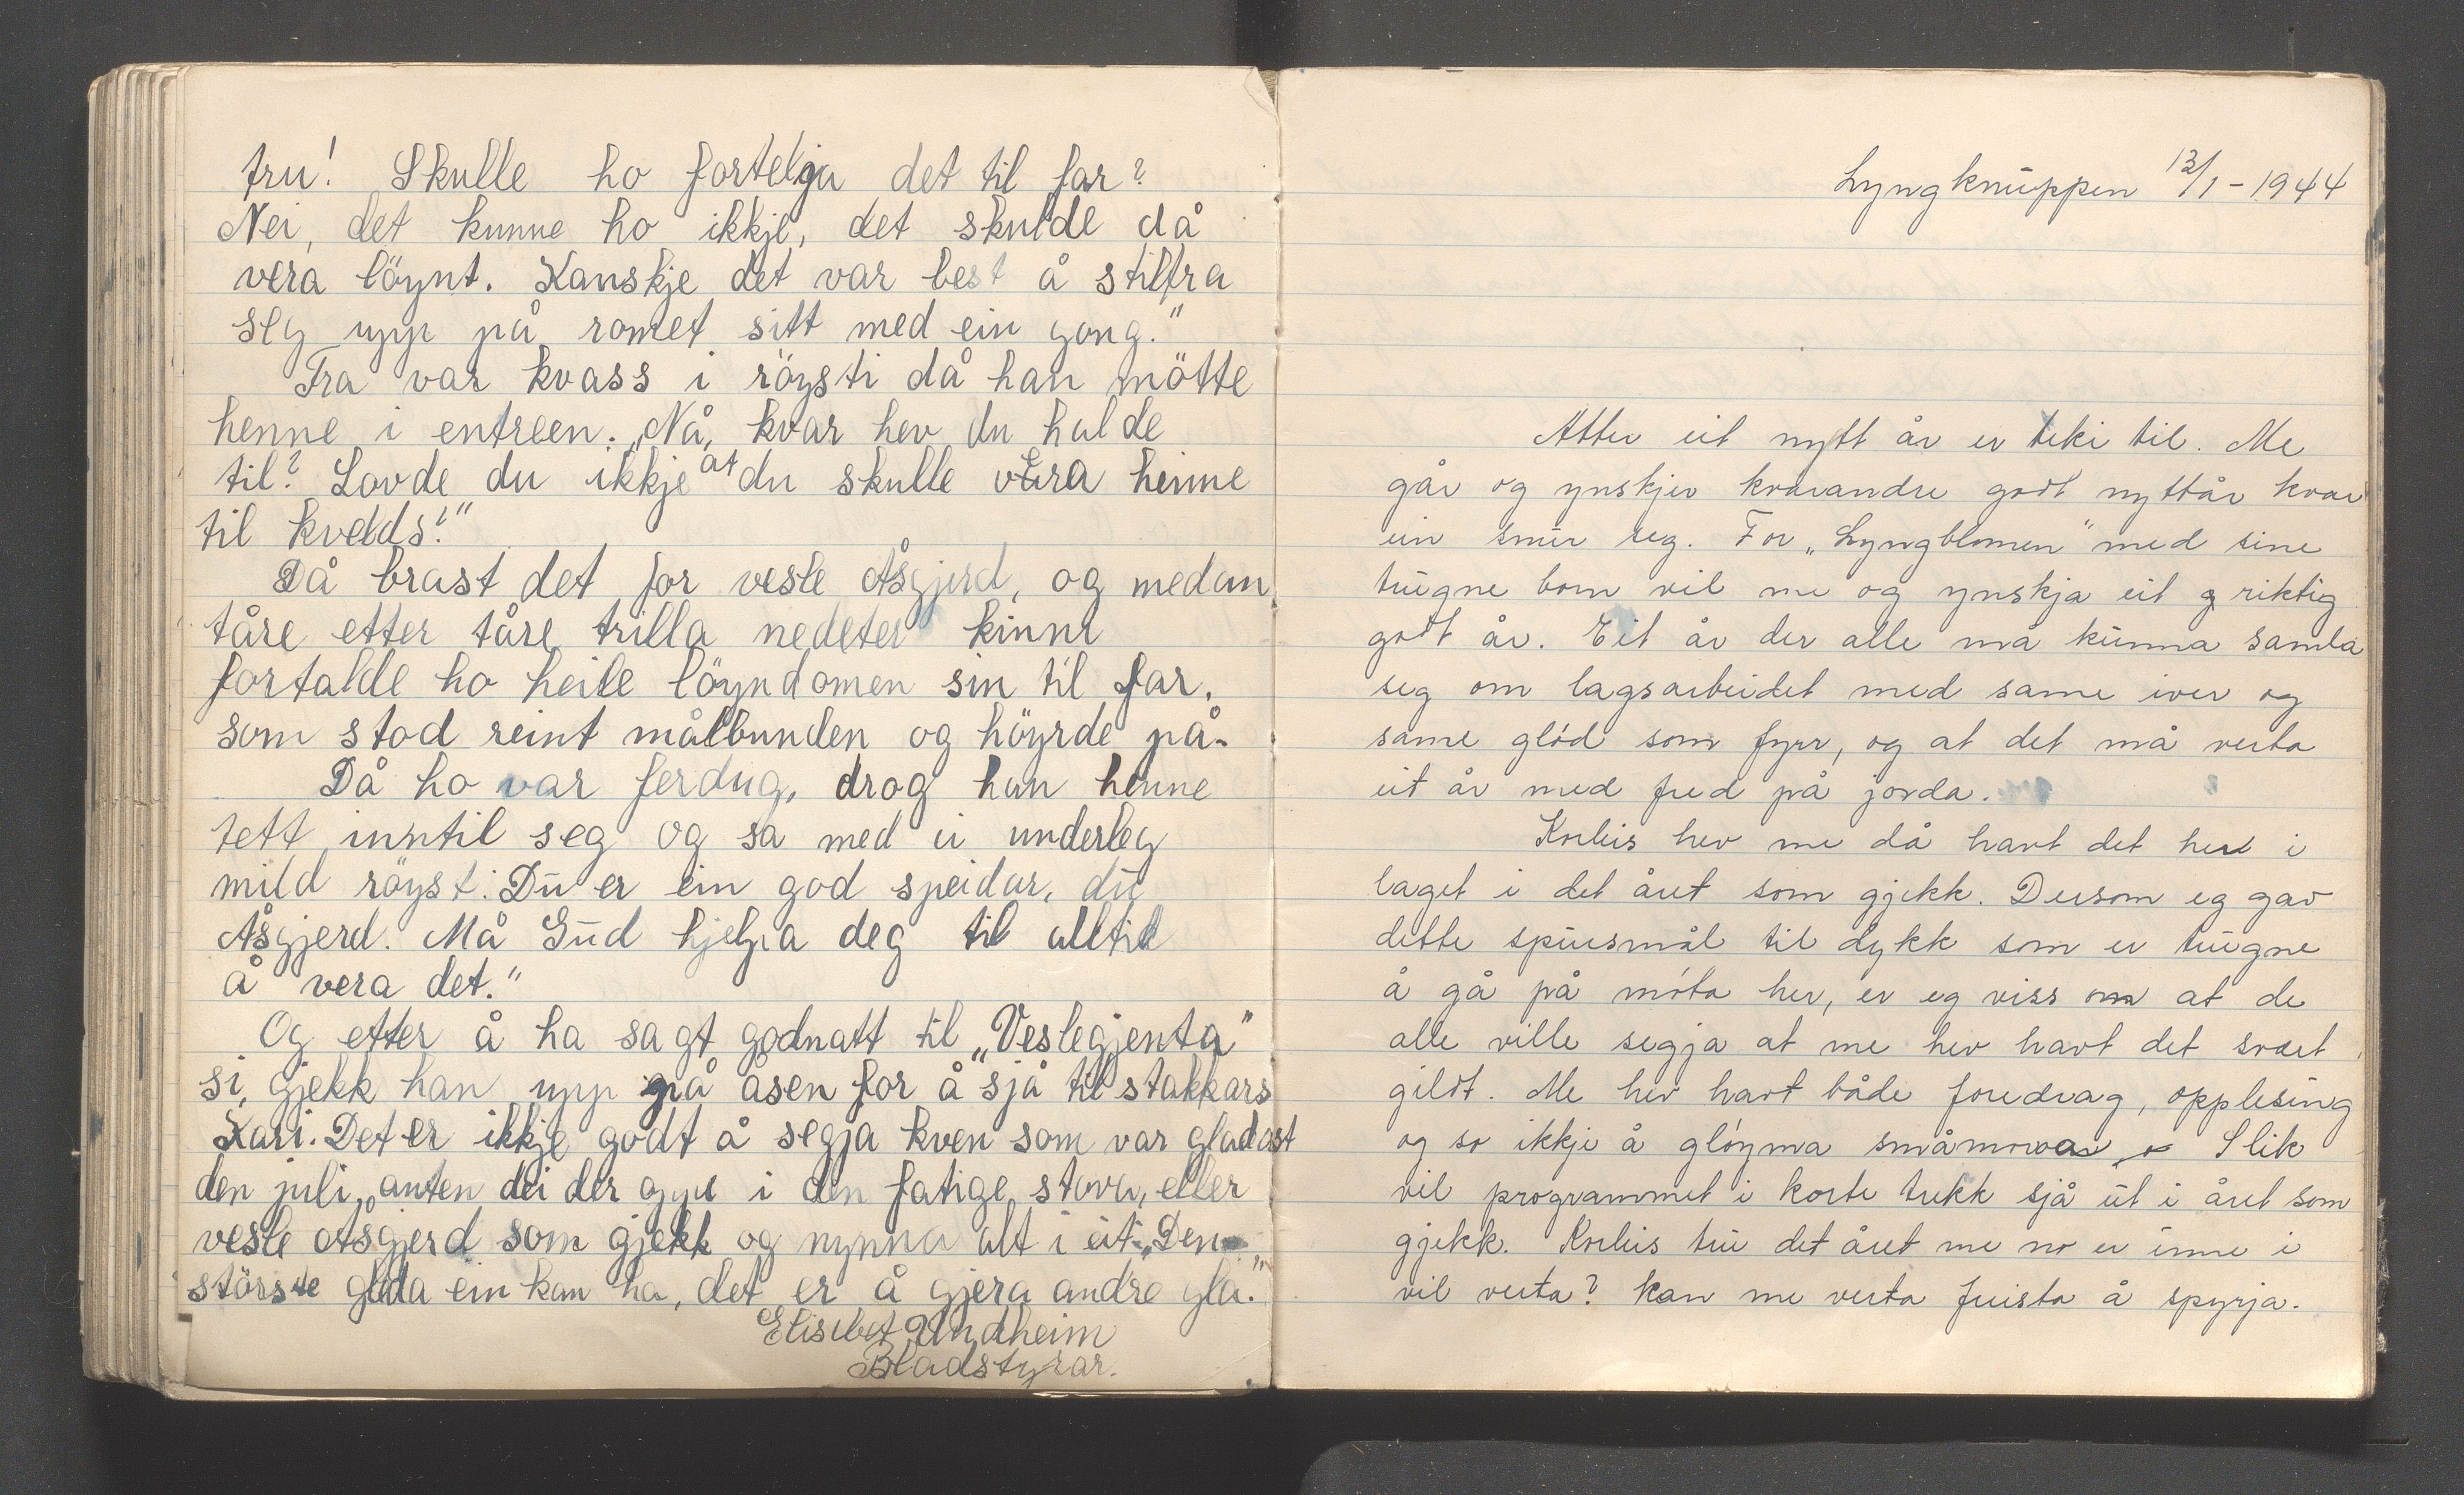 tru! Skulle ho fortelja det til far?
Nei, det kunne ho ikkje, det skulde då
vera löynt. Kanskje det var best å stiltra
seg upp på romet sitt med ein gong."
Fra var kvass i röysti då han mötte
henne i entreen. „Nå, kvar hev du halde
til? Lovde du ikkje at du skulle vera heime
til kvelds?"
Då brast det for vesle Åsgjerd, og medan
tåre etter tåre trilla nedeter kinni
fortalde ho heile löyndomen sin til far,
som stod reint målbunden og höyrde på.
Då ho var ferdug, drog han henne
tett inntil seg og sa med ei underleg
mild röyst: Du er ein god speidar, du
Åsgjerd. Må Gud hjelpa deg til alltid
å vera det."
Og etter å ha sagt godnatt til „Veslegjenta"
si, gjekk han upp på åsen for å sjå til stakkars
Kari. Det er ikkje godt å segja kven som var gladast
den juli, anten dei der uppe i den fatige stova, eller
vesle Åsgjerd som gjekk og nynna alt i eit „Den
störste gleda ein kan ha, det er å gjera andre gla."
Elisabet Undheim
Bladstyrar.
Lyngknuppen 12/1-1944
Atter eit nytt år er teki til. Me
går og ynskjer kvarandre godt nyttår kvar
ein snur seg. For „Lyngblomen" med sine
trugne born vil me og ynskja eit riktig
godt år. Eit år der alle må kunna samla
seg om lagsarbeidet med same iver og
same glód som fyrr, og at det må verta
eit år med fred på jorda.
Korleis hev me då havt det her i
laget i det året som gjekk. Dersom eg gav
dette spursmål til dykk som er trugne
å gå på móta her, er eg viss at de
alle ville segja at me hev havt det svært
gildt. Me hev havt både foredrag, opplesing
og so ikkje å glóyma småmoroa. Slik
vil programmet i korte trekk sjå ut i året som
gjekk. Korleis tru det året me no er inne i
vil verta? kan me verta freista å spyrja.